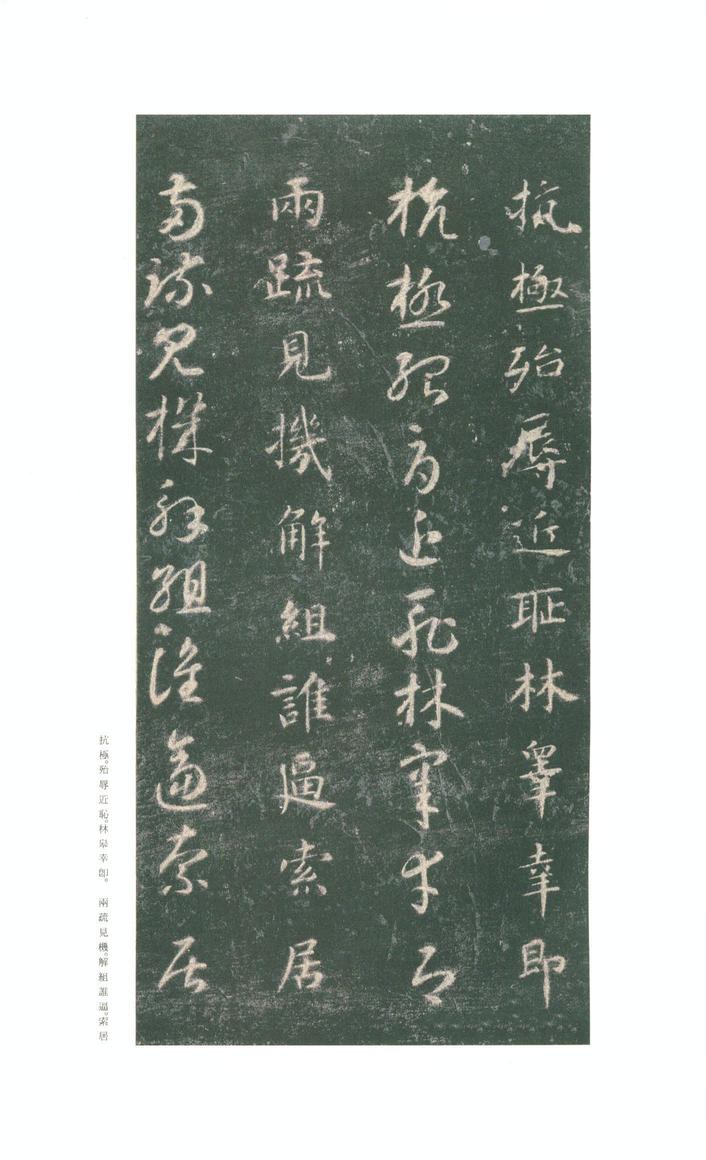 抗極殆辱近耻林睾幸即
抗極殆辱近恥林皋幸即
兩疏見機解組誰逼索居
兩疏見機解組誰逼索居
抗極。殆辱近恥。林皋幸卽。 兩疏見機。解組誰逼。索居